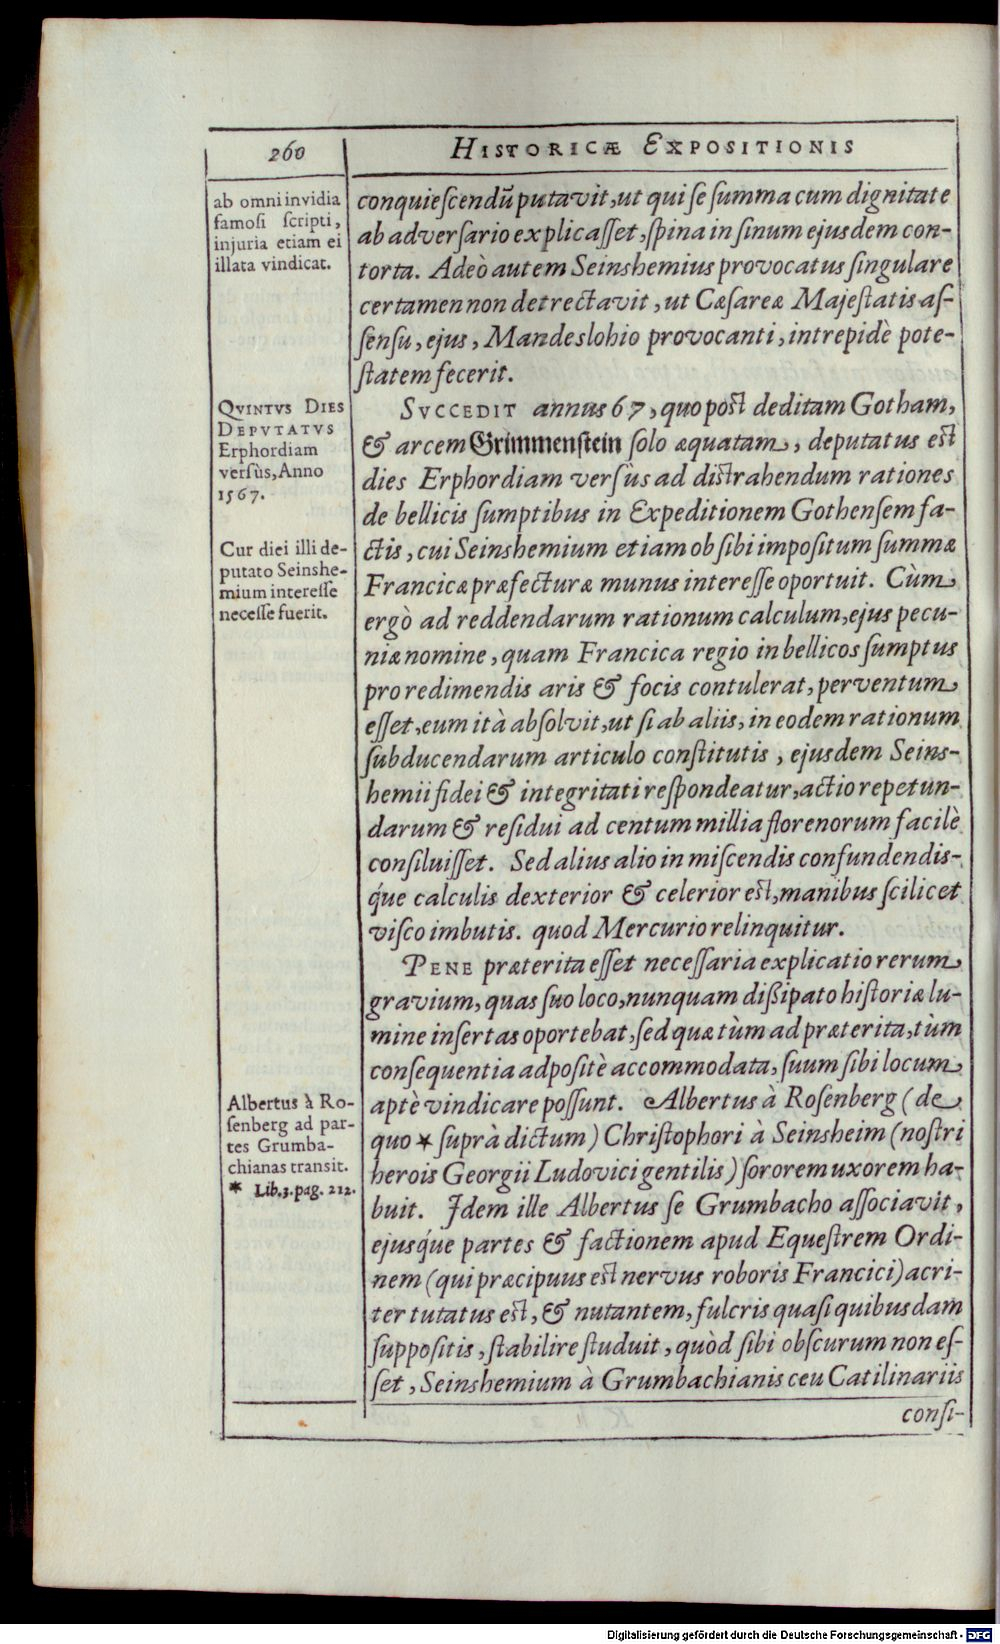 260
HISTORICÆ EXPOSITIONIS
ab omni invidia
famosi scripti,
injuria etiam ei
illata vindicat.
conquiescendū putavit, ut qui se summa cum dignitate
ab adversario explicasset, spina in sinum ejusdem con-
torta. Adeò autem Seinshemius provocatus singulare
certamen non detrectavit, ut Cæsareæ Majestatis as-
sensu, ejus, Mandeslohio provocanti, intrepidè pote-
statem fecerit.
QVINTVS DIES
DEPVTATVS
Erphordiam
versùs, Anno
1567.
SVCCEDIT annus 67, quo post deditam Gotham,
& arcem Grimmenstein solo æquatam, deputatus est
dies Erphordiam versùs ad distrahendum rationes
de bellicis sumptibus in Expeditionem Gothensem fa-
Cur diei illi de-
putato Seinshe-
mium interesse
necesse fuerit.
ctis, cui Seinshemium etiam ob sibi impositum summæ
Francicæ præfecturæ munus interesse oportuit. Cùm
ergò ad reddendarum rationum calculum, ejus pecu-
niæ nomine, quam Francica regio in bellicos sumptus
pro redimendis aris & focis contulerat, perventum
esset, eum ità absolvit, ut si ab aliis, in eodem rationum
subducendarum articulo constitutis, ejusdem Seins-
hemii fidei & integritati respondeatur, actio repetun-
darum & residui ad centum millia florenorum facilè
consiluisset. Sed alius alio in miscendis confundendis-
q́ue calculis dexterior & celerior est, manibus scilicet
visco imbutis. quod Mercurio relinquitur.
PENE præterita esset necessaria explicatio rerum
gravium, quas suo loco, nunquam dißipato historiæ lu-
mine insertas oportebat, sed quæ tùm ad præterita, tùm
consequentia adpositè accommodata, suum sibi locum
Albertus à Ro-
senberg ad par-
tes Grumba-
chianas transit.
* Lib. 3. pag. 212.
aptè vindicare possunt. Albertus à Rosenberg (de
quo * suprà dictum) Christophori à Seinsheim (nostri
herois Georgii Ludovici gentilis) sororem uxorem ha-
buit. Idem ille Albertus se Grumbacho associavit,
ejusq́ue partes & factionem apud Equestrem Ordi-
nem (qui præcipuus est nervus roboris Francici) acri-
ter tutatus est, & nutantem, fulcris quasi quibusdam
suppositis, stabilire studuit, quòd sibi obscurum non es-
set, Seinshemium à Grumbachianis ceu Catilinariis
consi-
Digitalisierung gefördert durch die Deutsche Forschungsgemeinschaft - DFG